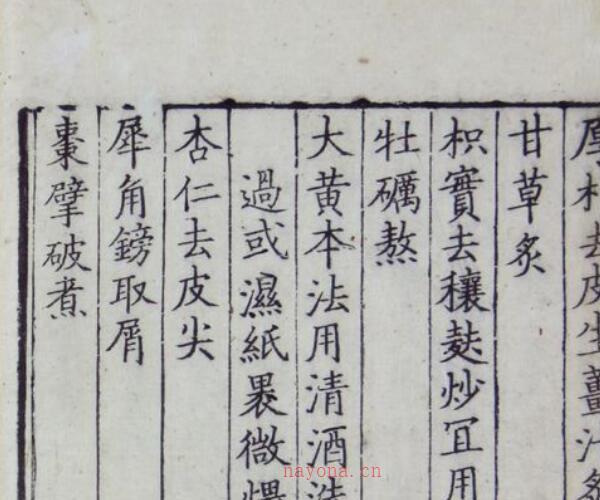 厚朴去皮生薑汁炙
甘草炙
枳實去穰麸炒冝用
牡礪熬
大黄本法用清酒洗
過或濕紙褁微煨
杏仁去皮尖
犀角鎊取屑
棗擘破煮
nayona.cn